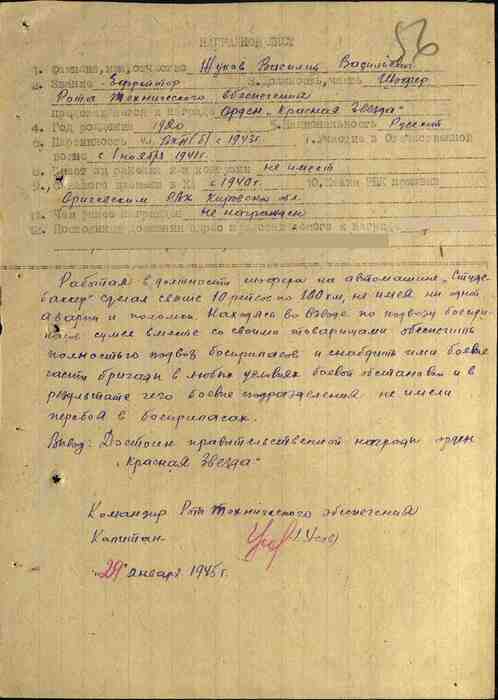 56
НАГРАДНОЙ ЛИСТ
1. Фамилия, имя, отчество Жуков Василий Васильевич
2. Звание Ефрейтор 3. Должность, часть Шофер
Роты технического обеспечения
представляется к награде орден "Красная Звезда"
4. Год рождения 1920 5. Национальность Русский
6. Партийность чл. ВКП(б) с 1943г. 7. Участие в Отечественной
войне с 1 ноября 1941г.
8. Имеет ли ранения и контузии не имеет
9. С какого времени в КА с 1940г. 10. Каким РВК призван
Оричевским РВК Кировской обл.
11. Чем ранее награжден не награжден
12. Постоянный домашний адрес
Работая в должности шофера на автомашине "Студе-
бакер" сделал свыше 10 рейсов по 800 км, не имея ни одной
аварии и поломки. Находясь во взводе по подвозу боеприпа-
сов сумел вместе со своими товарищами обеспечить
полностью подвоз боеприпасов и снабдить ими боевые
части бригады в любых условиях боевой обстановки и в
результате чего боевые подразделения не имели
перебоя в боеприпасах.
Вывод: Достоин правительственной награды орден
"Красная Звезда"
Командир Роты технического обеспечения
Капитан
"29" января 1945г.